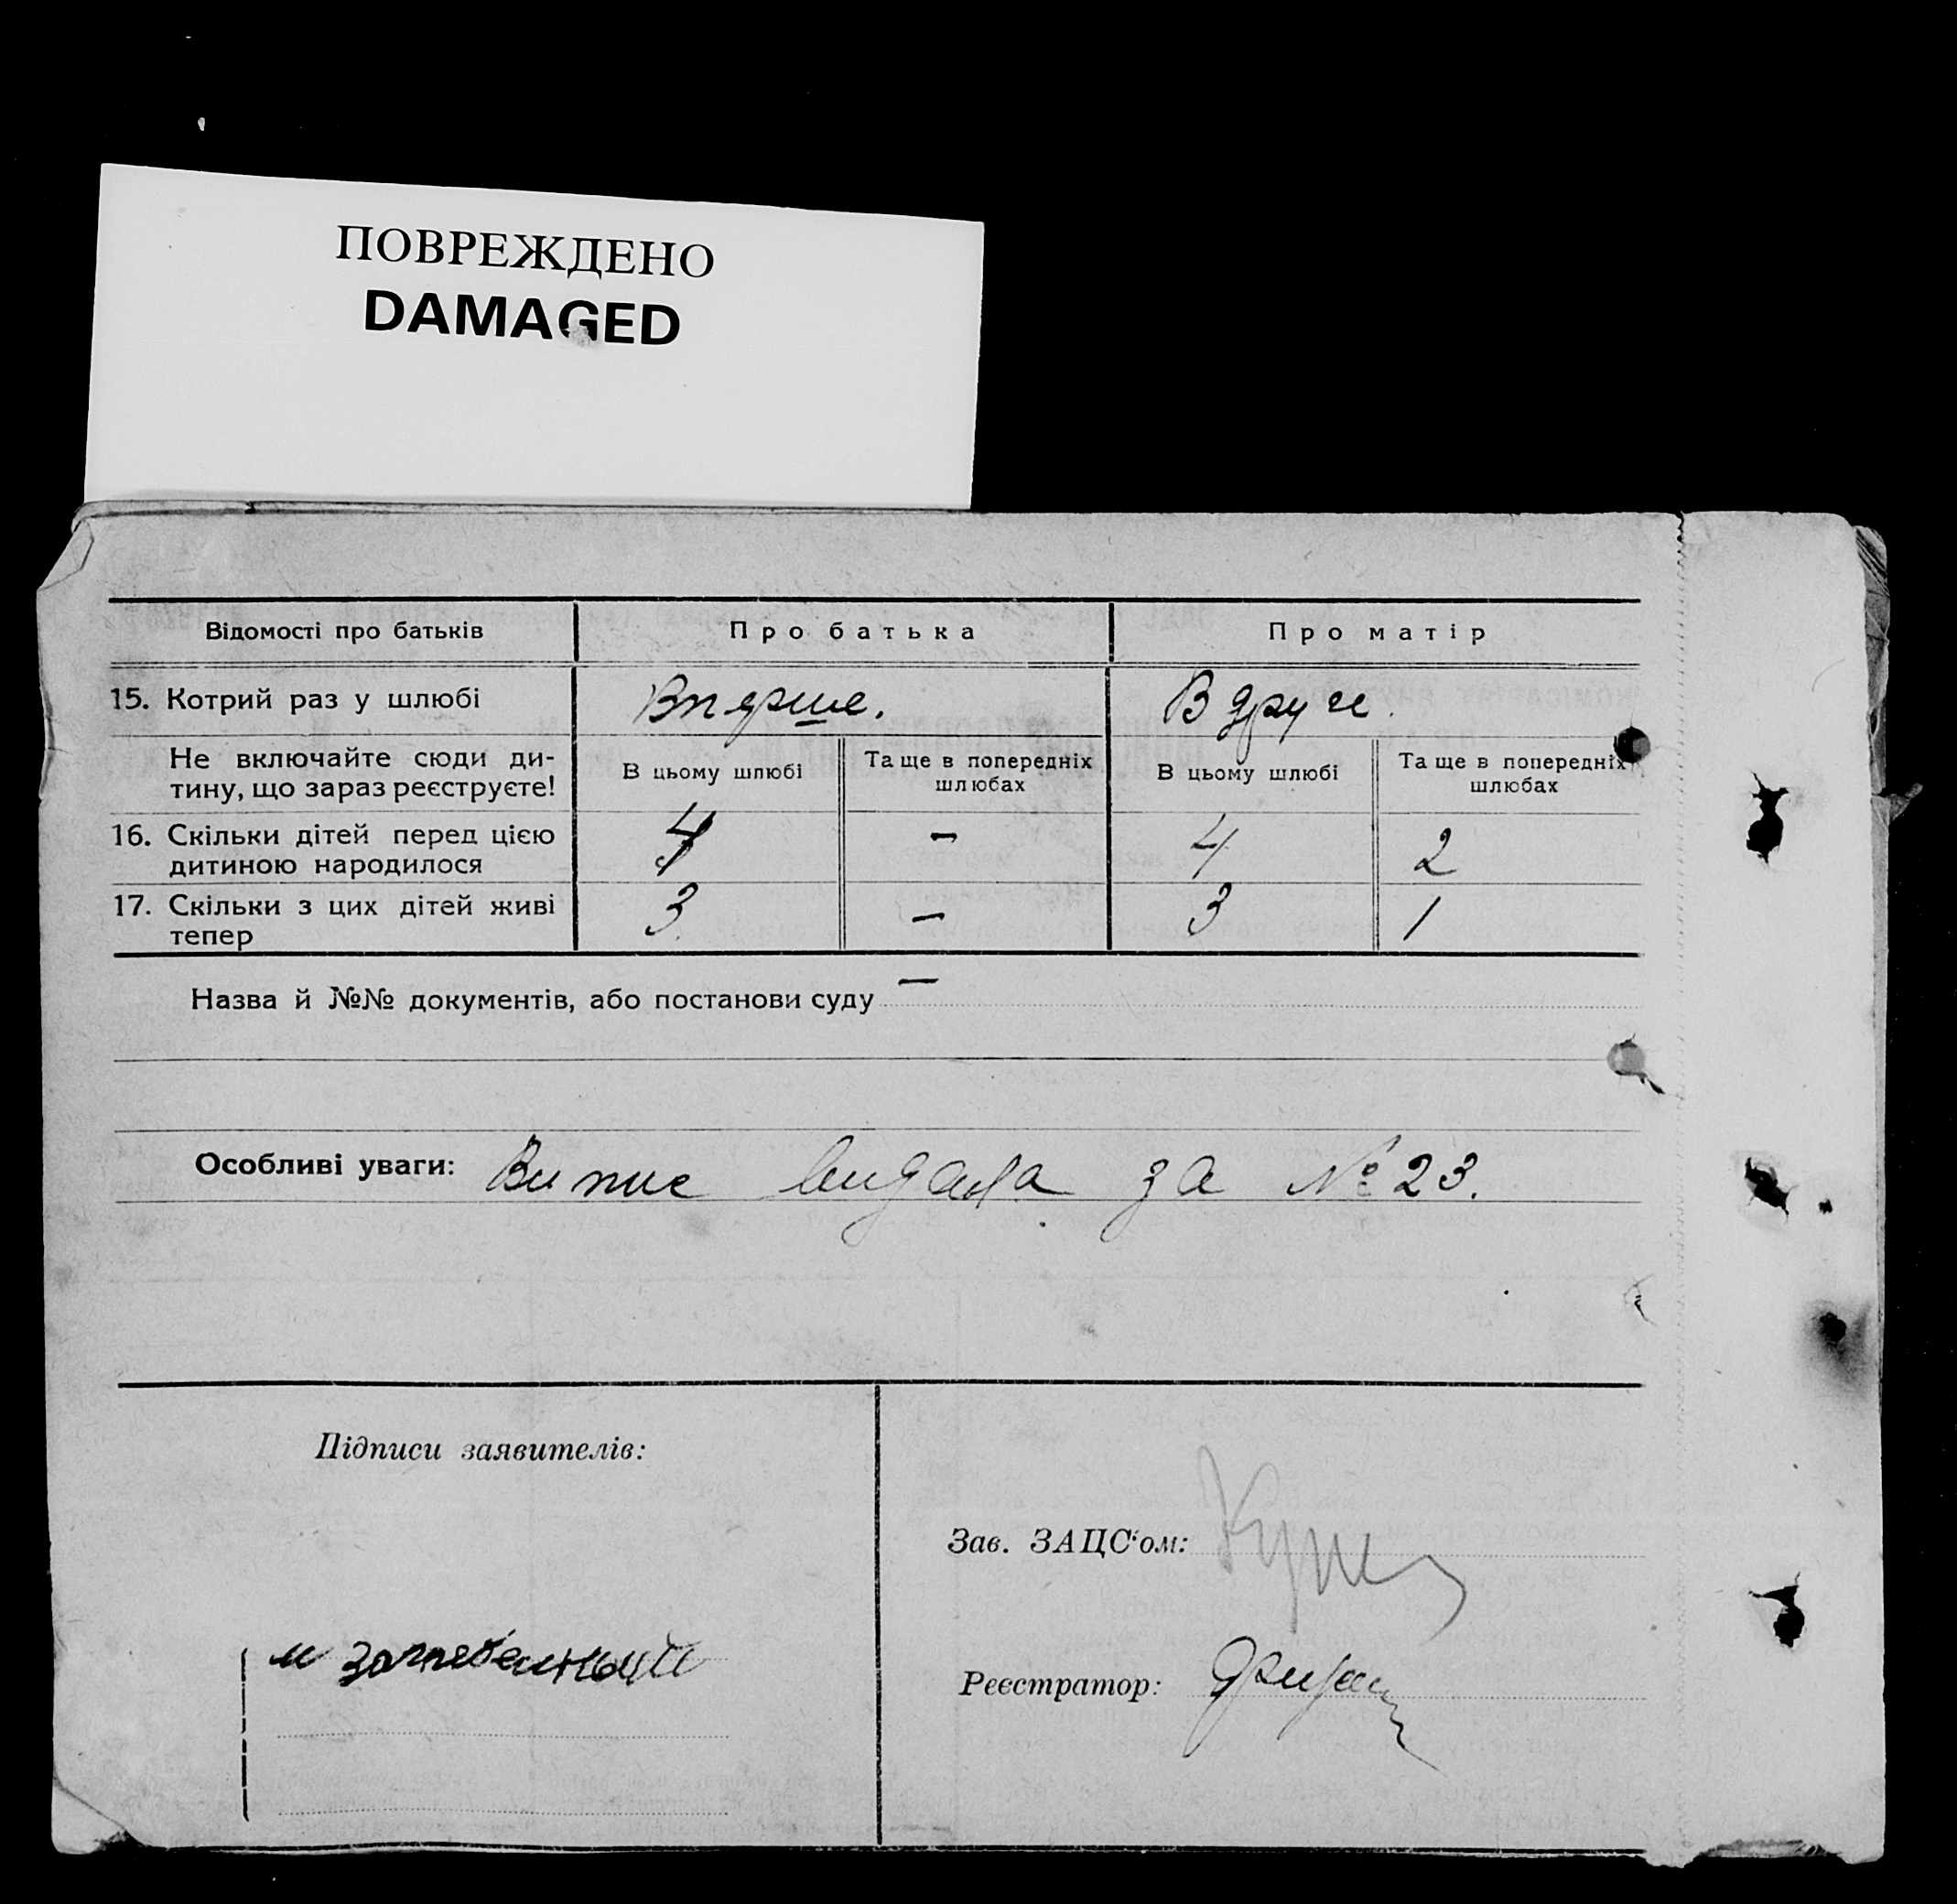 ПОВРЕЖДЕНО
DAMAGED
Відомості про батьків
Про батька
Про матір
15. Котрий раз у шлюбі
Вперше.
Вдруге.
Не включайте сюди ди-
тину, що зараз реєструєте!
В цьому шлюбі
Та ще в попередніх
шлюбах
В цьому шлюбі
Та ще в попередніх
шлюбах
16. Скільки дітей перед цією
дитиною народилося
4
–
4
2
17. Скільки з цих дітей живі
тепер
3
–
3
1
Назва й №№ документів, або постанови суду –
Особливі уваги: Випис видала за № 23.
Підписи заявителів:
Зав. ЗАЦС‘ом:
Реєстратор: